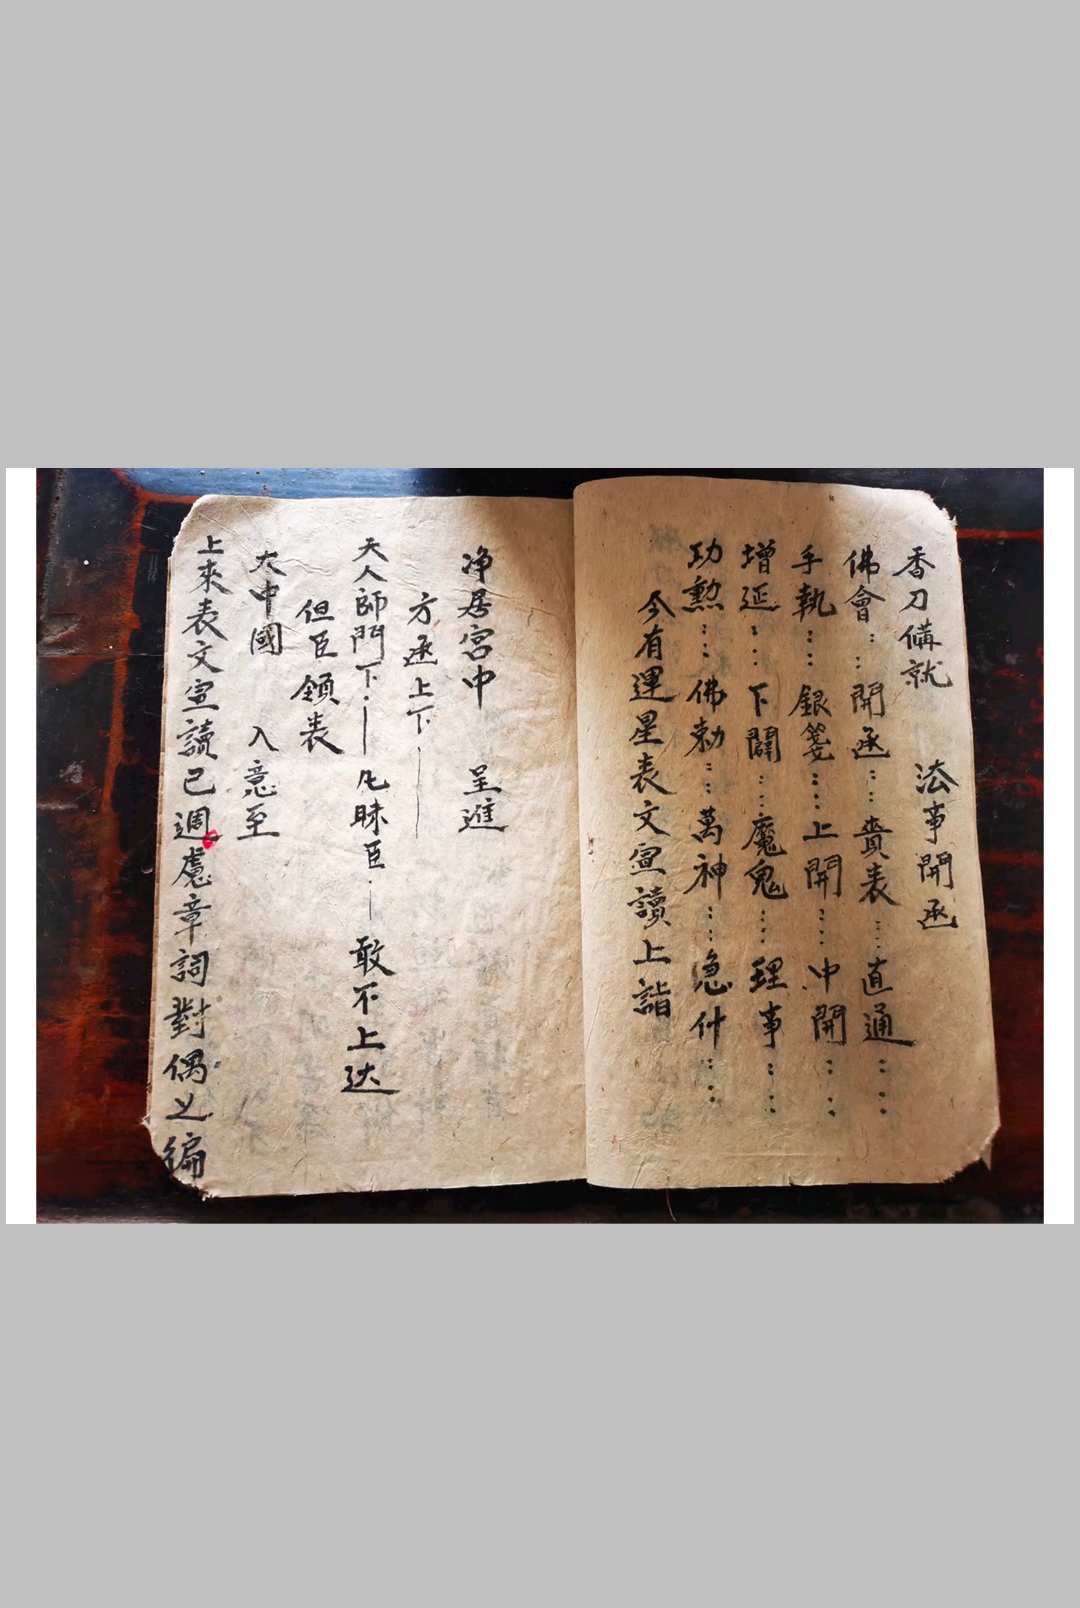 香刀備就 法事開函
佛會：：開函：：賫表：：直通：：
手執：：銀箋：：上開：：中開：：
增延：：下關：：魔鬼：：理事：：
功勲：：佛勅：：萬神：：急什：：
今有運星表文宣讀上詣
净居宮中 呈進
方函上下
天人師門下 凡昧臣 敢不上达
但臣領表
大中國 入意至
上來表文宣讀已週慮章詞對偶之編